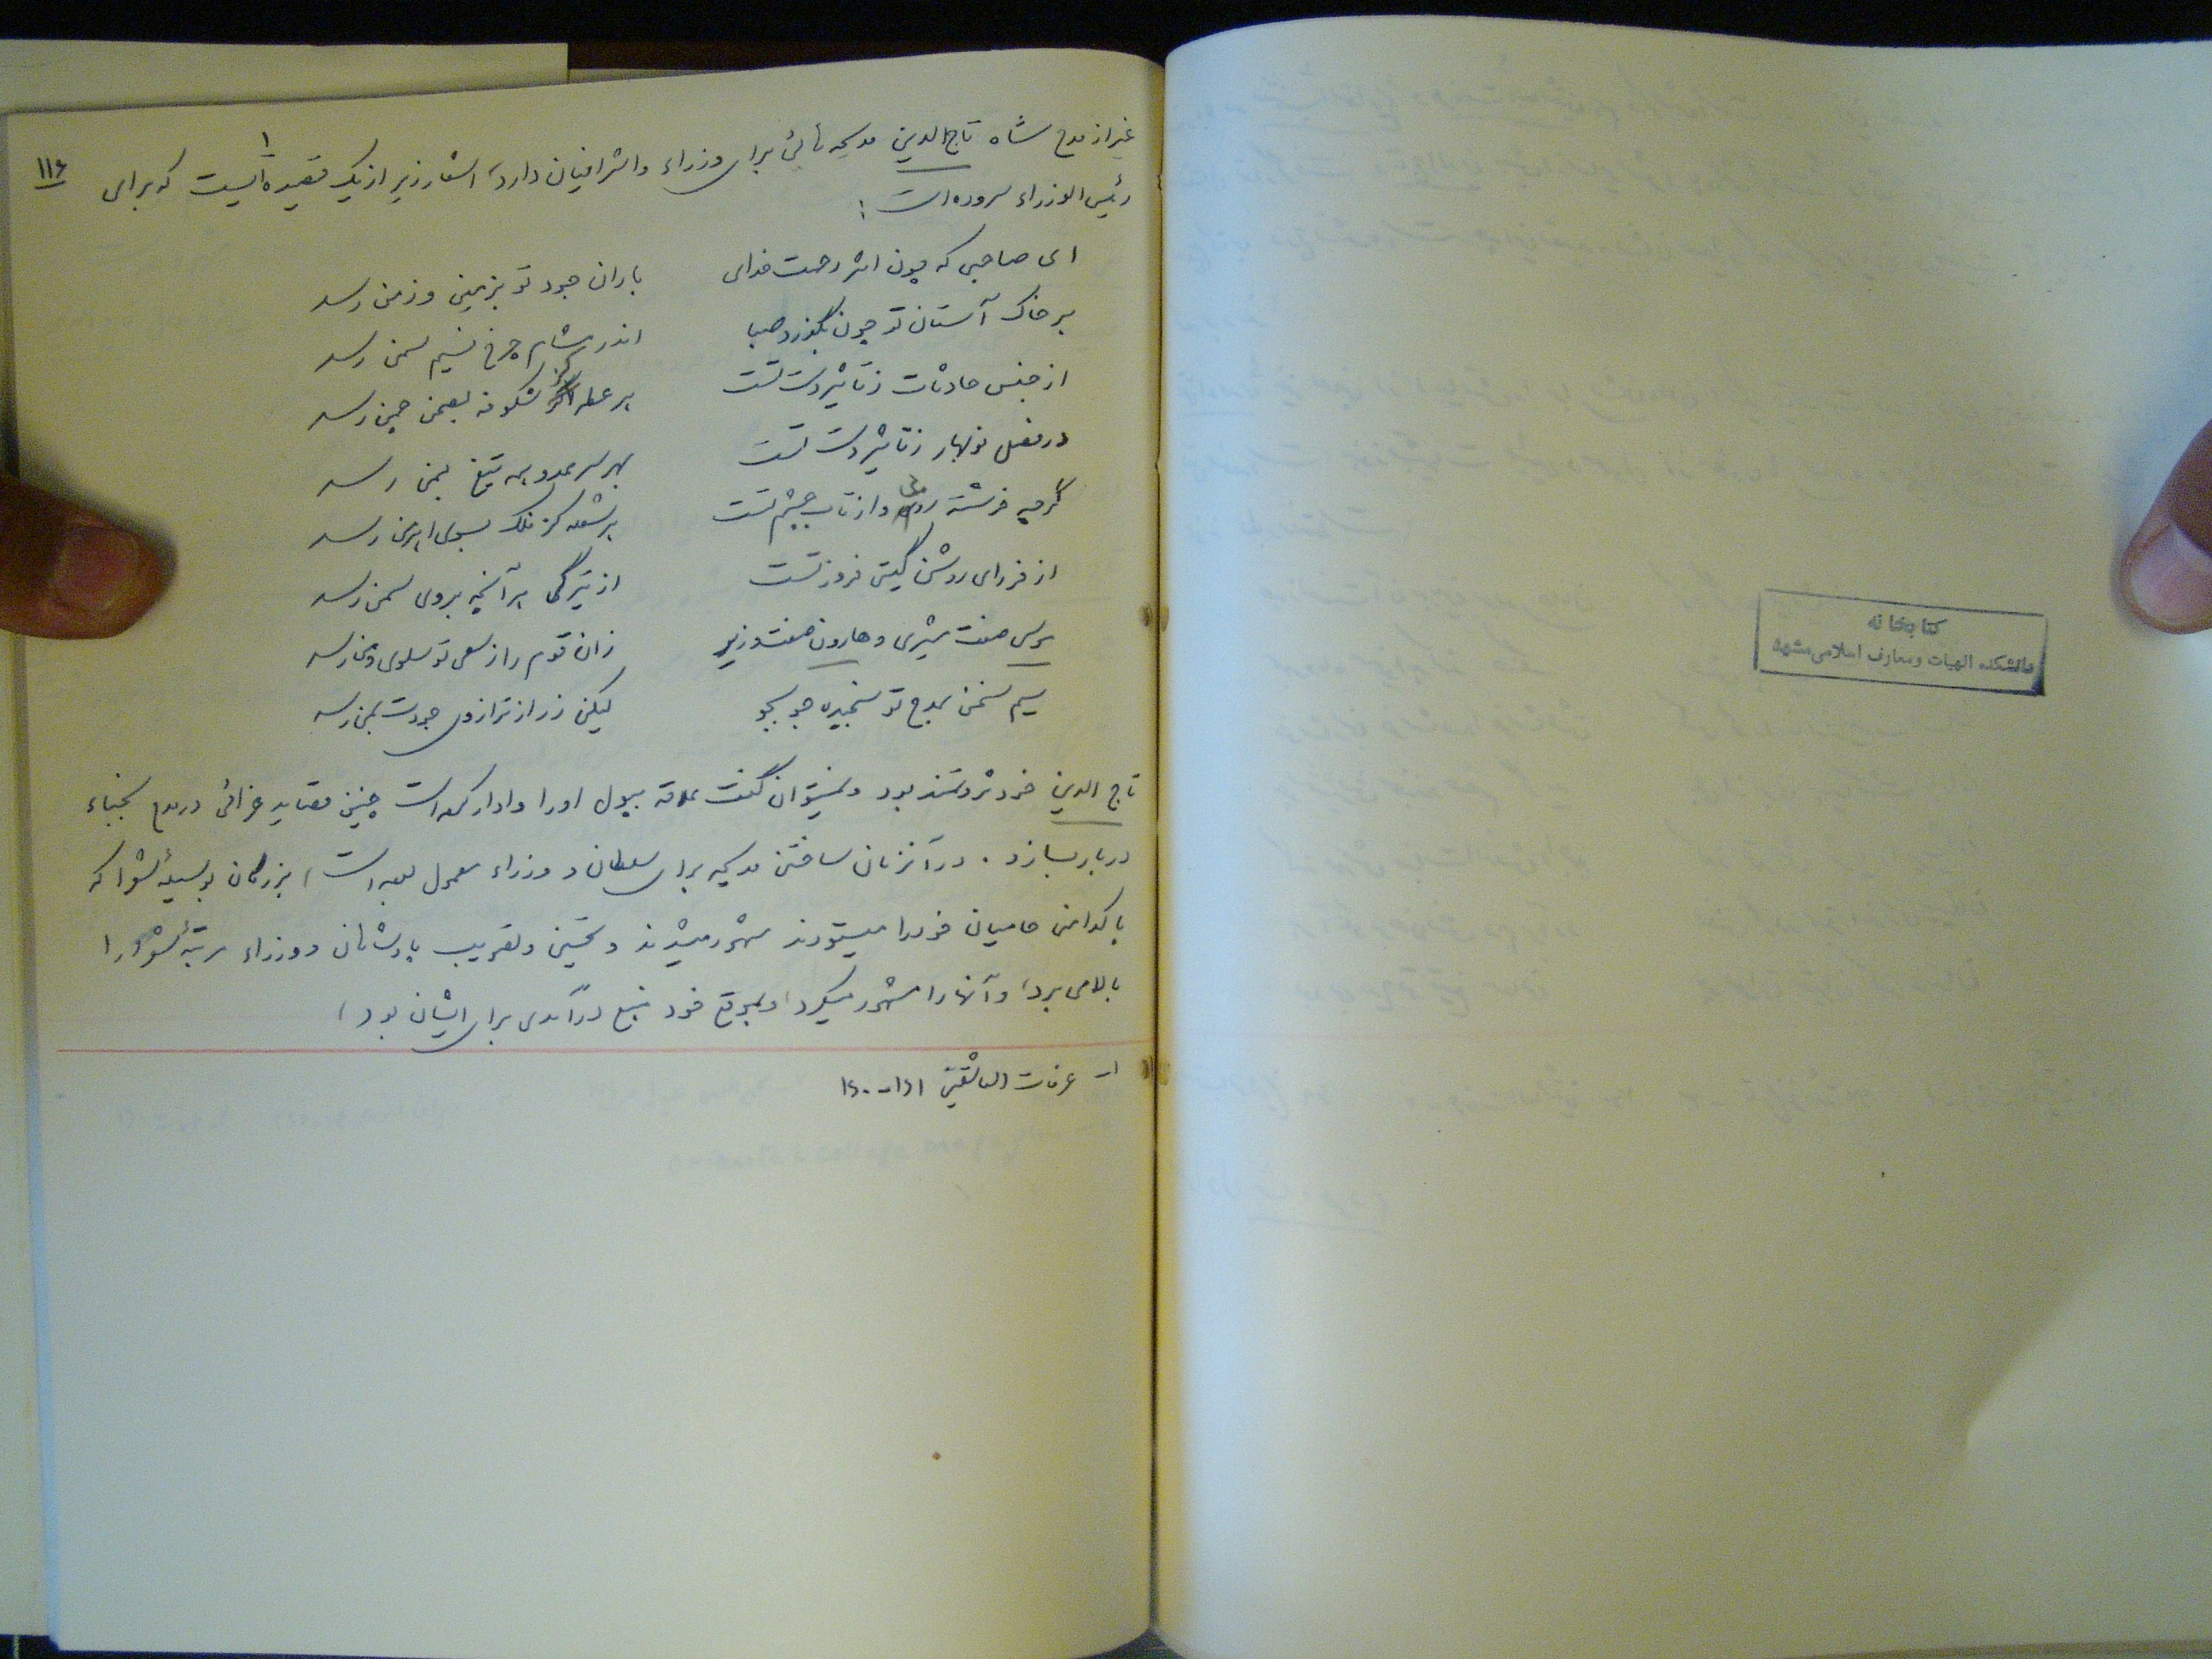 ۱۱۶
غیر از مدح شاه تاج الدین مدیحه هائی برای وزراء و اشرافیان دارد، اشعار زیر از یک قصیده ایست که برای
۱
رئیس الوزراء سروده است :
ای صاحبی که چون اثر رحمت خدای باران جود تو بزمین و زمن رسد
بر خاک آستان تو چون بگذرد صبا اندر مشام چرخ نسیم سمن رسد
از جنس حادثات ز تأثیر دست تست هر عطر کز شکوفه بصحن چمن رسد
در فصل نوبهار ز تأثیر دست تست بهر سر عدو همه تیغ یمن رسد
گرچه فرشته روئی و از تاب خشم تست هر شعله کز فلک بسوی اهرمن رسد
از فر رای روشن گیتی فروز تست از تیرگی هر آنچه بروی سمن رسد
موسی صفت مشیری و هارون صفت وزیر زان قوم را ز سعی تو سلوی و من رسد
سیم سخن بمدح تو سنجیده جو بجو لیکن زر از ترازوی جودت بمن رسد
تاج الدین خود ثروتمند بود و نمیتوان گفت علاقه بپول او را وادار کرده است چنین قصاید غرائی در مدح نجباء
دربار بسازد. در آنزمان ساختن مدیحه برای سلطان و وزراء معمول بوده است، بزرگان بوسیله شعرا که
پاکدامن حامیان خود را میستودند مشهور میشدند و تحسین و تقریب پادشاهان و وزراء مرتبه شعرا را
بالا می برد، و آنها را مشهور میکرد، و بموقع خود منبع درآمدی برای ایشان بود،
۱- عرفات العاشقین ۱۵۱-۱۵۰
کتابخانه
دانشکده الهیات و معارف اسلامی مشهد